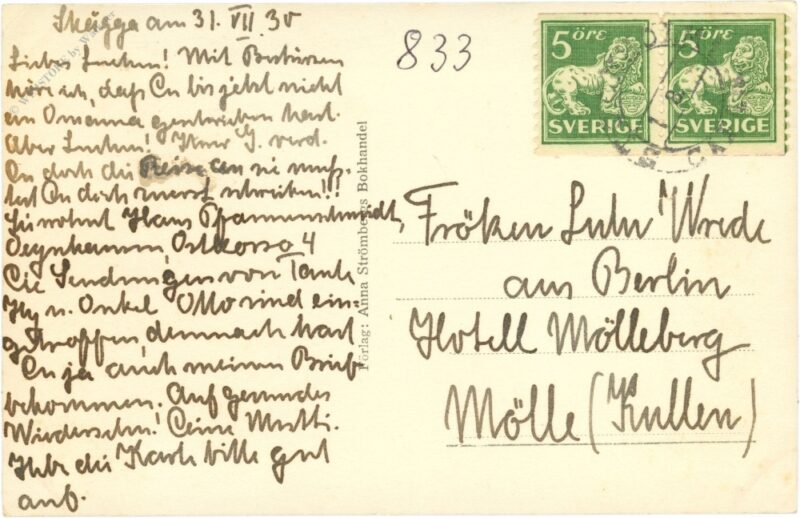 Skägga am 31. VII. 30
Liebes Luchen! Mit Bestürzen
höre ich, daß Du bis jetzt nicht
an Omama geschrieben hast.
Aber Luchen! G. verd.
Du doch die Reise an sie muß-
test Du dich zuerst schreiben!!
Sie wohnt Hans Pfannenschmidt,
Oeynhausen, Ostkorso 4
Die Sendungen von Tante
u. Onkel Otto sind ein-
getroffen, demnach hast
Du ja auch meinen Brief
bekommen. Auf gesundes
Wiedersehn! Deine Mutti.
Hebe die Karte bitte gut
auf.
Förlag: Anna Strömbergs Bokhandel
833
5 ÖRE
SVERIGE
5 ÖRE
SVERIGE
Fröken Lulu Wrede
aus Berlin
Hotell Mölleberg
Mölle (Kullen)